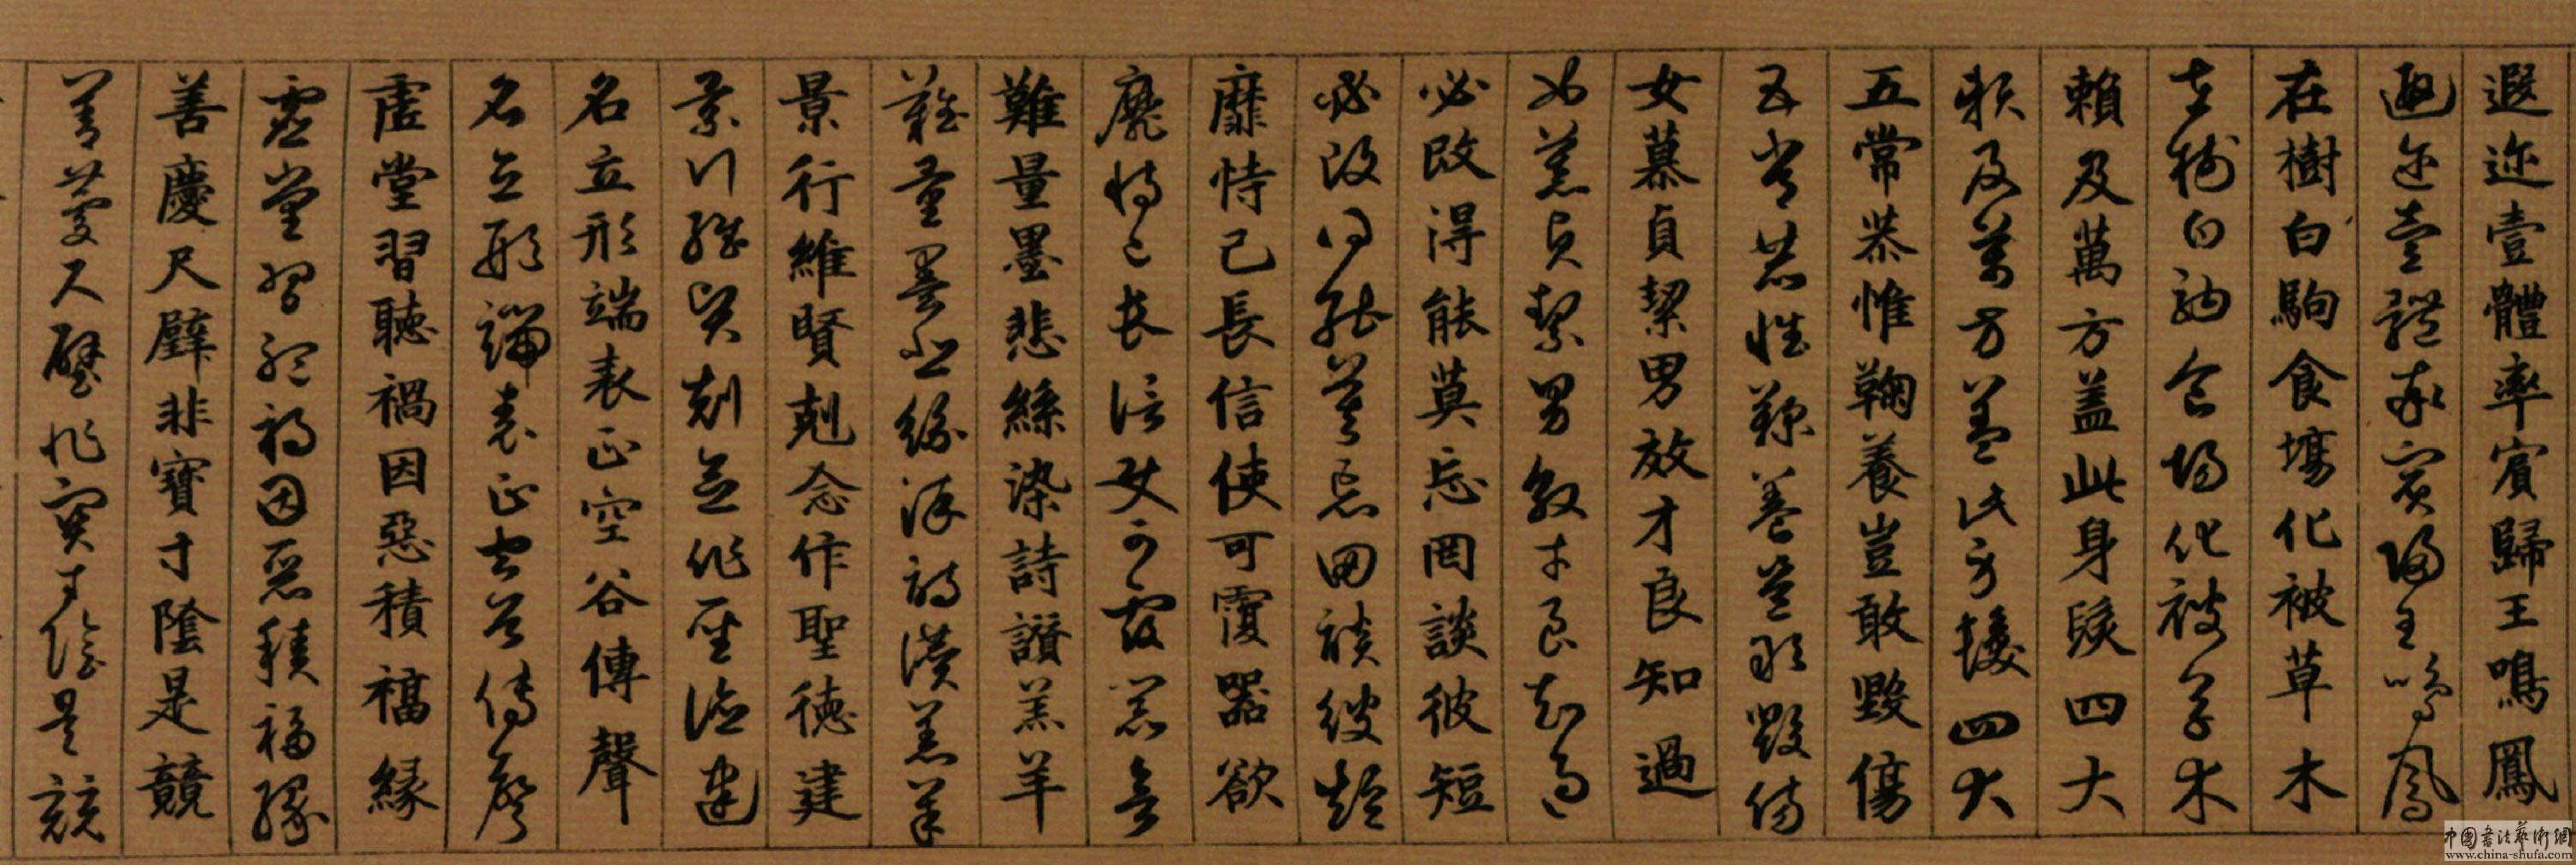 遐迩壹體率賓歸王鳴鳳
遐迩壹體率賓歸王鳴鳳
在樹白駒食場化被草木
在樹白駒食場化被草木
賴及萬方盖此身髮四大
賴及萬方盖此身髮四大
五常恭惟鞠養豈敢毀傷
五常恭惟鞠養豈敢毀傷
女慕貞絜男效才良知過
女慕貞絜男效才良知過
必改得能莫忘罔談彼短
必改得能莫忘罔談彼短
靡恃己長信使可覆器欲
靡恃己長信使可覆器欲
難量墨悲絲染詩讃羔羊
難量墨悲絲染詩讃羔羊
景行維賢剋念作聖德建
景行維賢剋念作聖德建
名立形端表正空谷傳聲
名立形端表正空谷傳聲
虛堂習聽禍因惡積福緣
虛堂習聽禍因惡積福緣
善慶尺璧非寶寸陰是競
善慶尺璧非寶寸陰是競
中國書法藝術網
www.china-shufa.com